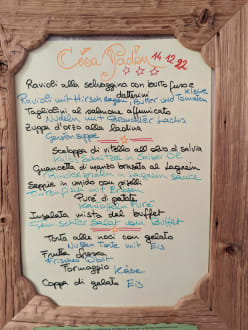 Cesa Padon
14.12.22
Ravioli alla selvaggina con burro fuso e
datterini
Ravioli mit Hirsch Butter und Tomaten
Tagliolini al salmone affumicato
Nudeln mit Lachs
Zuppa d'orzo alla ladina
Gerstensuppe
Scaloppa di vitello all'olio di salvia
Kalbs Schnitzel in Salbei Öl
Guancetta di manzo brasata al Lagrein
in Lagrein Sauce
Seppie in umido con piselli
Tintenfisch mit Erbsen
Purè di patate
Kartoffeln Pure
Insalata mista del buffet
Gemischter Salat vom Buffet
Torta alle noci con gelato
Nussen Torte mit Eis
Frutta fresca
Frisches Obst
Formaggio Käse
Coppa di gelato Eis